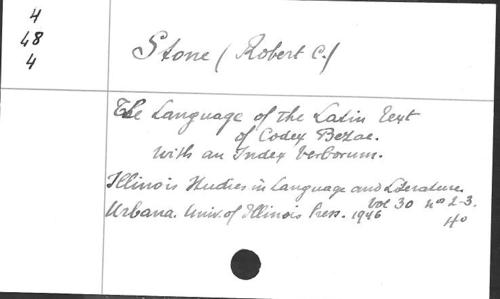 4
48
4
Stone (Robert C.)
The Language of the Latin Text
of Codex Bezae.
With an Index Verborum.
Illinois Studies in Language and Literature.
Vol 30 nos 2-3.
Urbana. Univ. of Illinois Press. 1946
4o